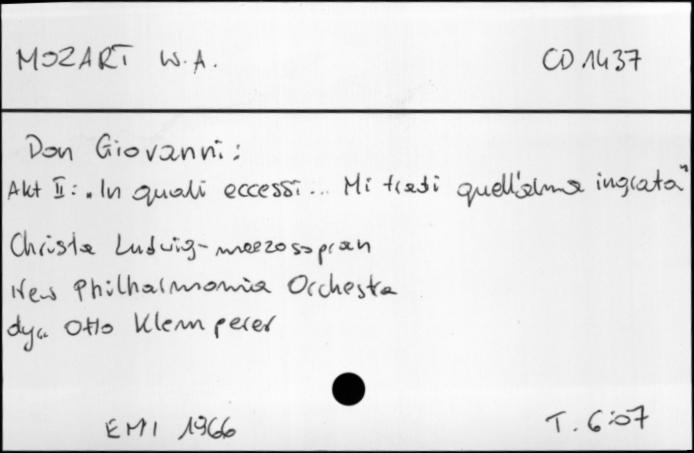 MOZART W.A. CD 1437
Don Giovanni:
Akt II: „In quali eccessi... Mi tradi quell'alma ingrata"
Christa Ludwig - mezzosopran
New Philharmonia Orchestra
dyr. Otto Klemperer
EMI 1966 T. 6:07